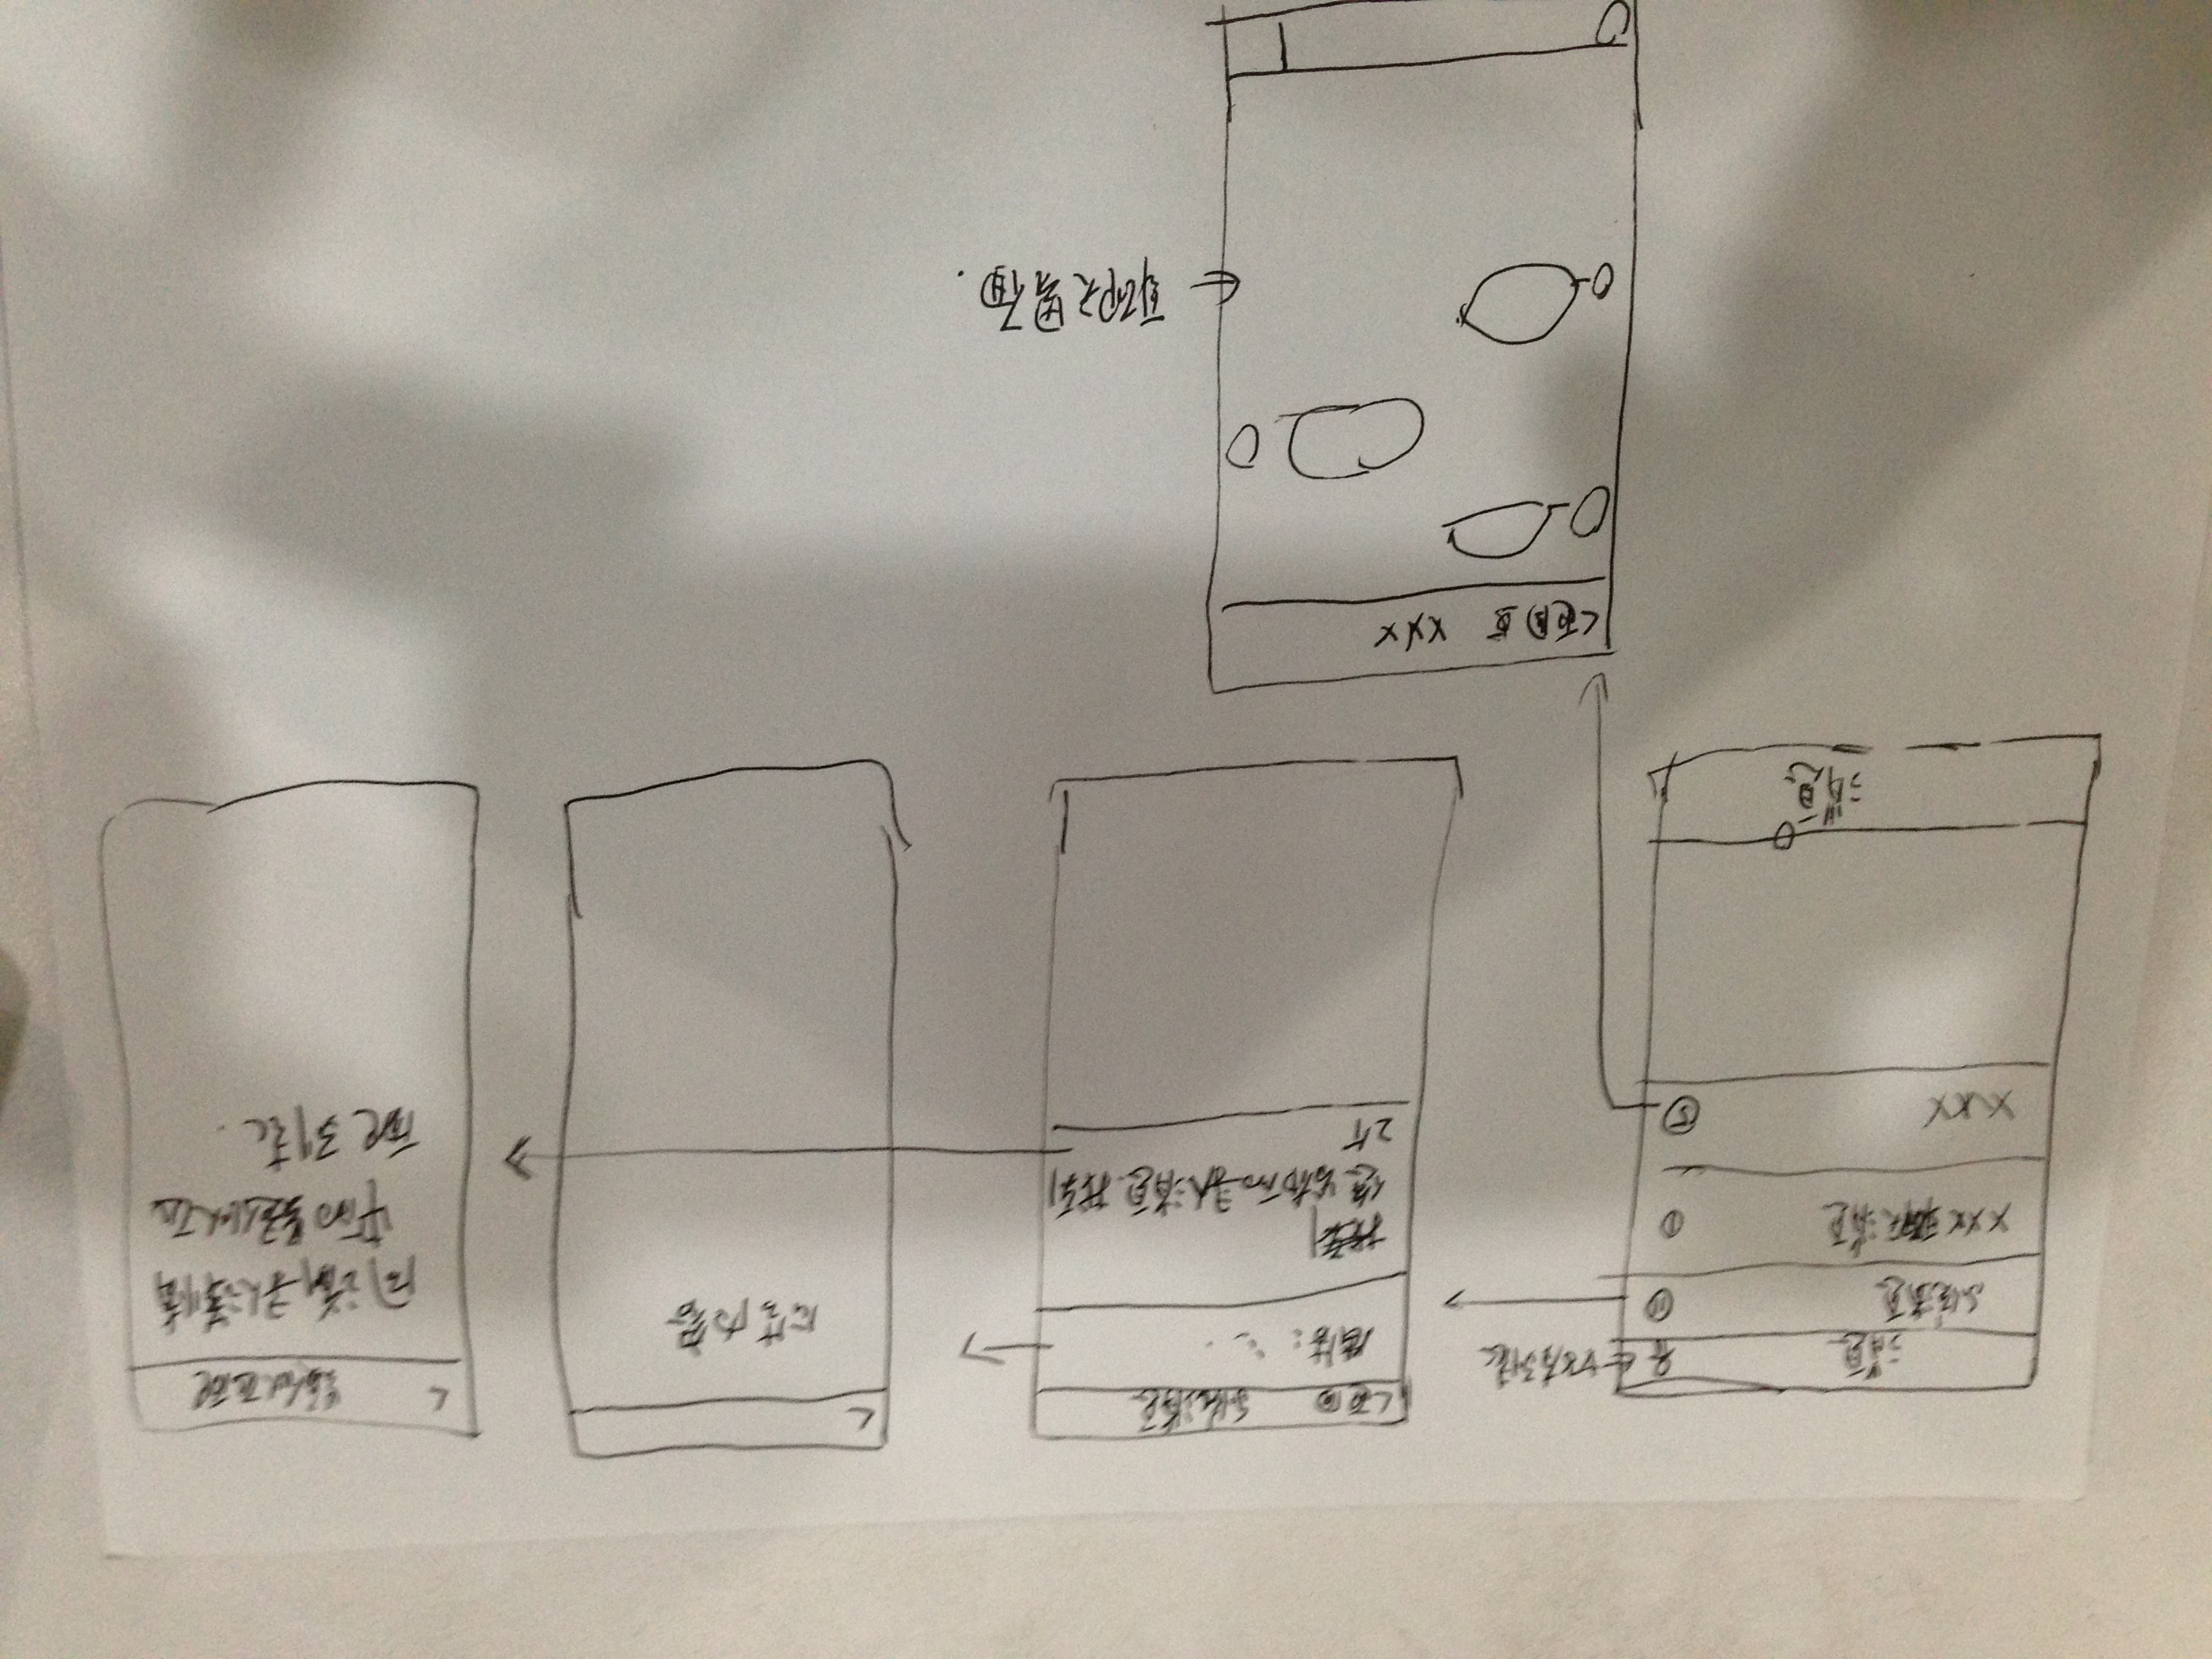 消息
← 好友列表
系统消息 ⑪
XXX 聊天消息 ①
XXX ⑤
消息
<返回 系统消息
广告:
找到
您发布的寻人消息.找到
2个
<
广告内容
< 疑似匹配
同 寻人详情
中的疑似匹
配列表.
<返回 XXX
← 聊天界面.